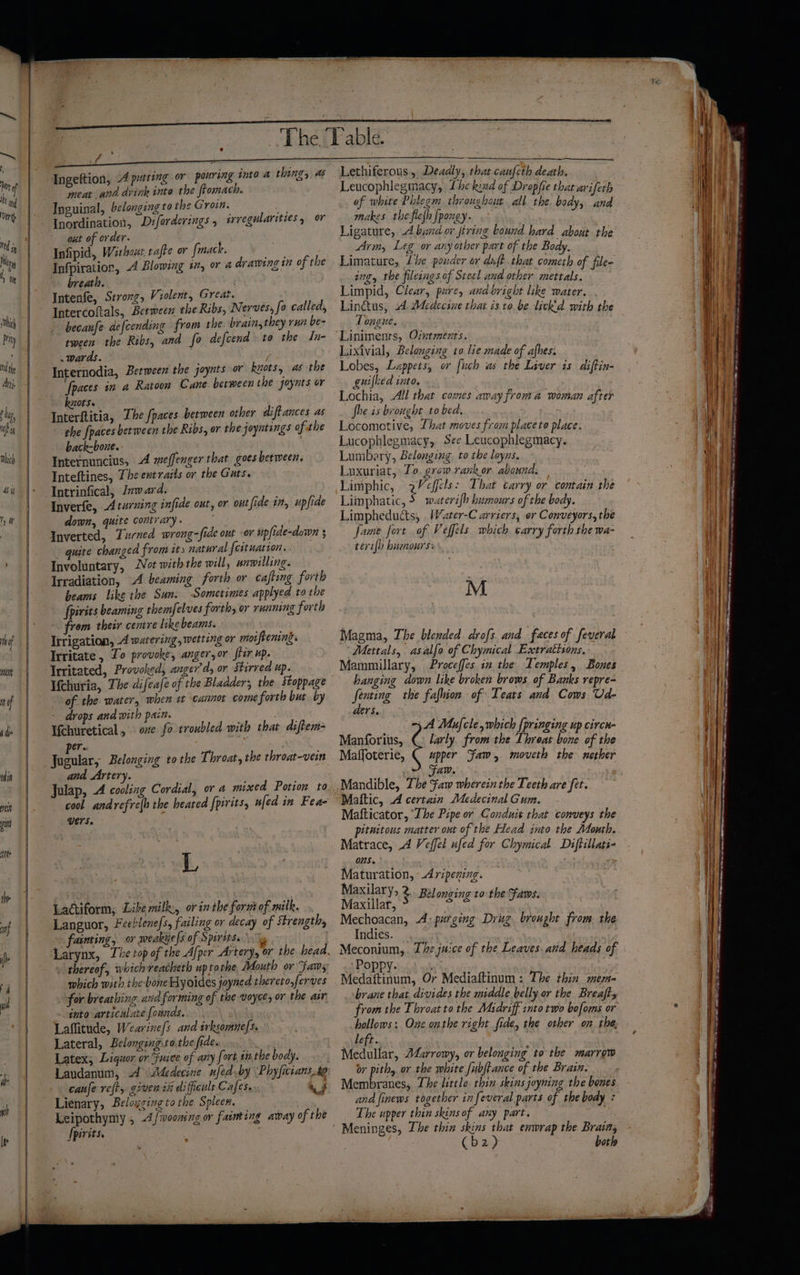 The Table.
Ingeſtion, A putting or pouring into a thing, as
meat and drink into the ſtomach.
Inguinal, belonging to the Groin.
Inordination, Diſorderings, irregularities, or
out of order.
Inſipid, Without taſte or ſmack.
Inſpiration, A Blowing in, or a drawing in of the
breath.
Intenſe, Strong, Violent, Great.
Intercoſtals, Between the Ribs, Nerves, ſo called,
becauſe deſcending from the brain, they run be-
tween the Ribs, and ſo deſcend to the In-
wards.
Internodia, Between the joynts or knots, as the
ſpaces in a Ratoon Cane between the joynts or
knots.
Interſtitia, The ſpaces between other diſtances as
the ſpaces between the Ribs, or the joyntings of the
back-bone.
Internuncius, A meſſenger that goes between.
Inteſtines, The entrails or the Guts.
Intrinſical, Inward.
Inverſe, A turning inſide out, or outſide in, upſide
down, quite contrary.
Inverted, Turned wrong-ſide out or upſide-down;
quite changed from its natural ſcituation.
Involuntary, Not with the will, unwilling.
Irradiation, A beaming forth or caſting forth
beams like the Sun. Sometimes applyed to the
ſpirits beaming themſelves forth, or running forth
from their centre like beams.
Irrigation, A watering, wetting or moiſtening.
Irritate, To provoke, anger, or ſtir up.
Irritated, Provoked, anger'd, or Stirred up.
Iſchuria, The diſeaſe of the Bladder, the Stoppage
of the water, when it cannot come forth but by
drops and with pain.
Iſchuretical, one ſo troubled with that diſtem-
per.
Jugular, Belonging to the Throat, the throat-vein
and Artery.
Julap, A cooling Cordial, or a mixed Potion to
cool and refreſh the heated ſpirits, uſed in Fea-
vers.
L
Lactiform, Like milk, or in the form of milk.
Languor, Feebleneſs, failing or decay of Strength,
fainting, or weakneſs of Spirits.
Larynx, The top of the Aſper Artery, or the head
thereof, which reacheth up to the Mouth or Jaws
which with the bone Hyoides joyned thereto, ſerves
for breathing and forming of the voyce, or the air
into articulate ſounds.
Laſſitude, Wearineſs and irkſomneſs.
Lateral, Belonging to the ſide.
Latex, Liquor or Juice of any ſort in the body.
Laudanum, A Medecine uſed by Phyſicians to
cauſe reſt, given in difficult Caſes.
Lienary, Belonging to the Spleen.
Leipothymy, A ſwooning or fainting away of the
ſpirits.
Lethiferous, Deadly, that cauſeth death.
Leucophlegmacy, The kind of Dropſie that ariſeth
of white Phlegm throughout all the body, and
makes the fleſh ſpongy.
Ligature, A band or ſtring bound hard about the
Arm, Leg or any other part of the Body.
Limature, The powder or duſt that cometh of file-
ing, the fileings of Steel and other mettals.
Limpid, Clear, pure, and bright like water.
Linctus, A Medecine that is to be lick'd with the
Tongue.
Liniments, Ointments.
Lixivial, Belonging to lie made of aſhes.
Lobes, Lappets, or ſuch as the Liver is diſtin-
guiſhed into.
Lochia, All that comes away from a woman after
ſhe is brought to bed.
Locomotive, That moves from place to place.
Lucophlegmacy, See Leucophlegmacy.
Lumbary, Belonging to the loyns.
Luxuriat, To grow rank or abound.
Limphic, } Veſſels: That carry or contain the
Limphatic, } wateriſh humours of the body.
Limpheducts, Water-Carriers, or Conveyors, the
ſame ſort of Veſſels which carry forth the wa-
teriſh humours.
M
Magma, The blended droſs and fæces of ſeveral
Mettals, as alſo of Chymical Extractions.
Mammillary, Proceſſes in the Temples, Bones
hanging down like broken brows of Banks repre-
ſenting the faſhion of Teats and Cows Ud-
ders.
Manſorius, } A Muſcle, which ſpringing up circu-
larly from the Throat bone of the
Maſſoterie, } upper Jaw, moveth the nether
Jaw.
Mandible, The Jaw wherein the Teeth are ſet.
Maſtic, A certain Medecinal Gum.
Maſticator, The Pipe or Conduit that conveys the
pituitous matter out of the Head into the Mouth.
Matrace, A Veſſel uſed for Chymical Diſtillati-
ons.
Maturation, A ripening.
Maxilary, } Belonging to the Jaws.
Maxillar, }
Mechoacan, A purging Drug brought from the
Indies.
Meconium, The juice of the Leaves and heads of
Poppy.
Medaſtinum, Or Mediaſtinum: The thin mem-
brane that divides the middle belly or the Breaſt,
from the Throat to the Midriff into two boſoms or
hollows: One on the right ſide, the other on the
left.
Medullar, Marrowy, or belonging to the marrow
or pith, or the white ſubſtance of the Brain.
Membranes, The little thin skins joyning the bones
and ſinews together in ſeveral parts of the body:
The upper thin skins of any part.
Meninges, The thin skins that enwrap the Brain,
(b2) both